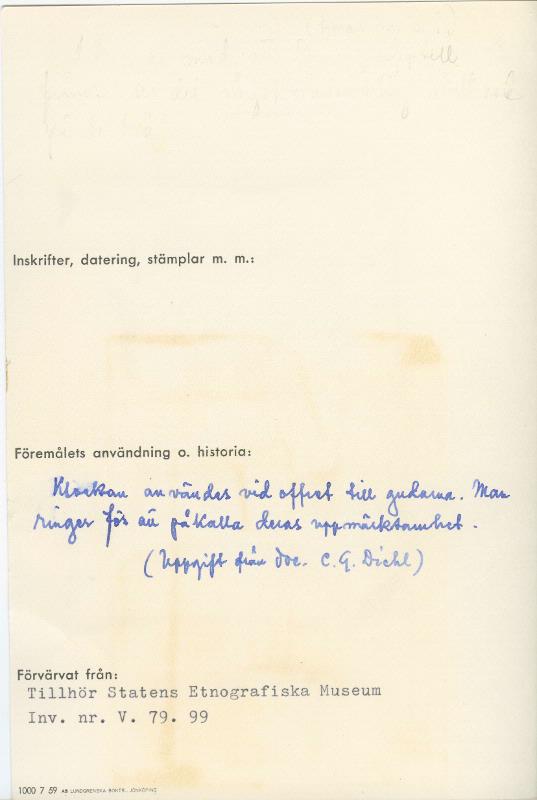 Inskrifter, datering, stämplar m. m.:
Föremålets användning o. historia:
Klockan användes vid offret till gudarna. Man
ringer för att påkalla deras uppmärksamhet.
(Uppgift från doc. C. G. Diehl)
Förvärvat från:
Tillhör Statens Etnografiska Museum
Inv. nr. V. 79. 99
1000 7 59 AB LUNDGRENSKA BOKTR., JÖNKÖPING